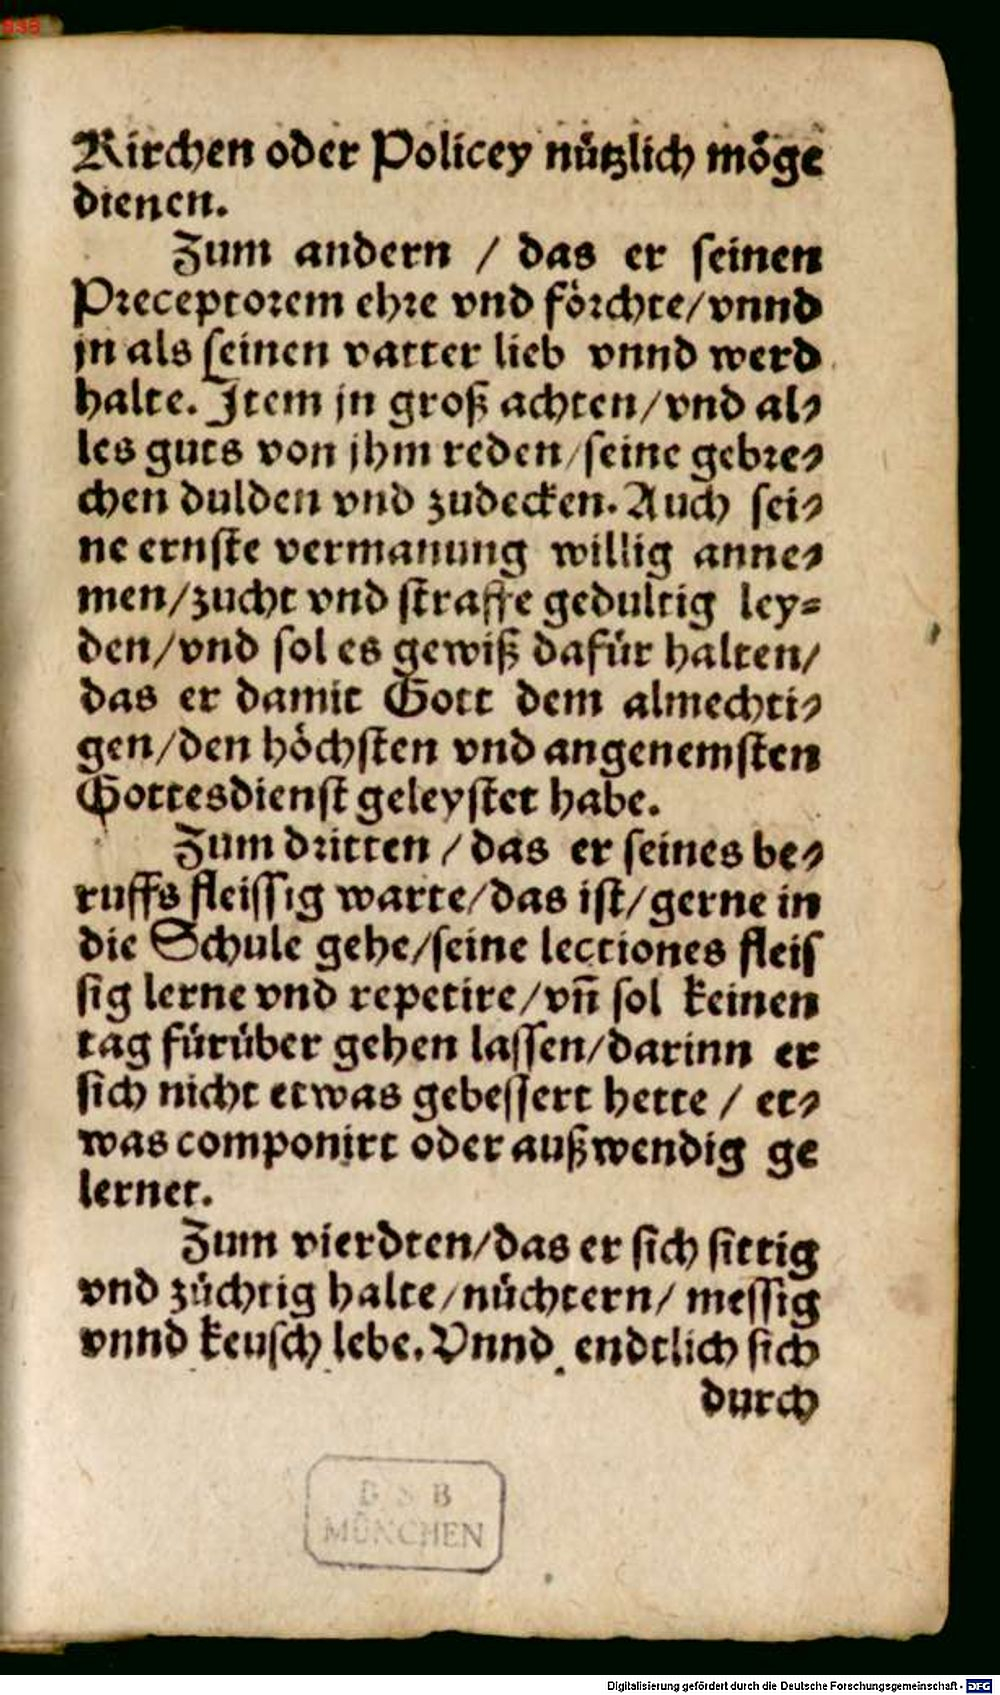 Kirchen oder Policey nützlich möge
dienen.
Zum andern / das er seinen
Preceptorem ehre vnd förchte/vnnd
jn als seinen vatter lieb vnnd werd
halte. Item jn groß achten/vnd al-
les guts von jhm reden/seine gebre-
chen dulden vnd zudecken. Auch sei-
ne ernste vermanung willig anne-
men/zucht vnd straffe gedultig ley-
den/vnd sol es gewiß dafür halten/
das er damit Gott dem almechti-
gen/den höchsten vnd angenemsten
Gottesdienst geleystet habe.
Zum dritten / das er seines be-
ruffs fleissig warte/das ist/gerne in
die Schule gehe/seine lectiones fleis
sig lerne vnd repetire/vñ sol keinen
tag fürüber gehen lassen/darinn er
sich nicht etwas gebessert hette / et-
was componirt oder außwendig ge
lernet.
Zum vierdten/das er sich sittig
vnd züchtig halte/nüchtern/ messig
vnnd keusch lebe. Vnnd endtlich sich
durch
B S B
MÜNCHEN
Digitalisierung gefördert durch die Deutsche Forschungsgemeinschaft - DFG